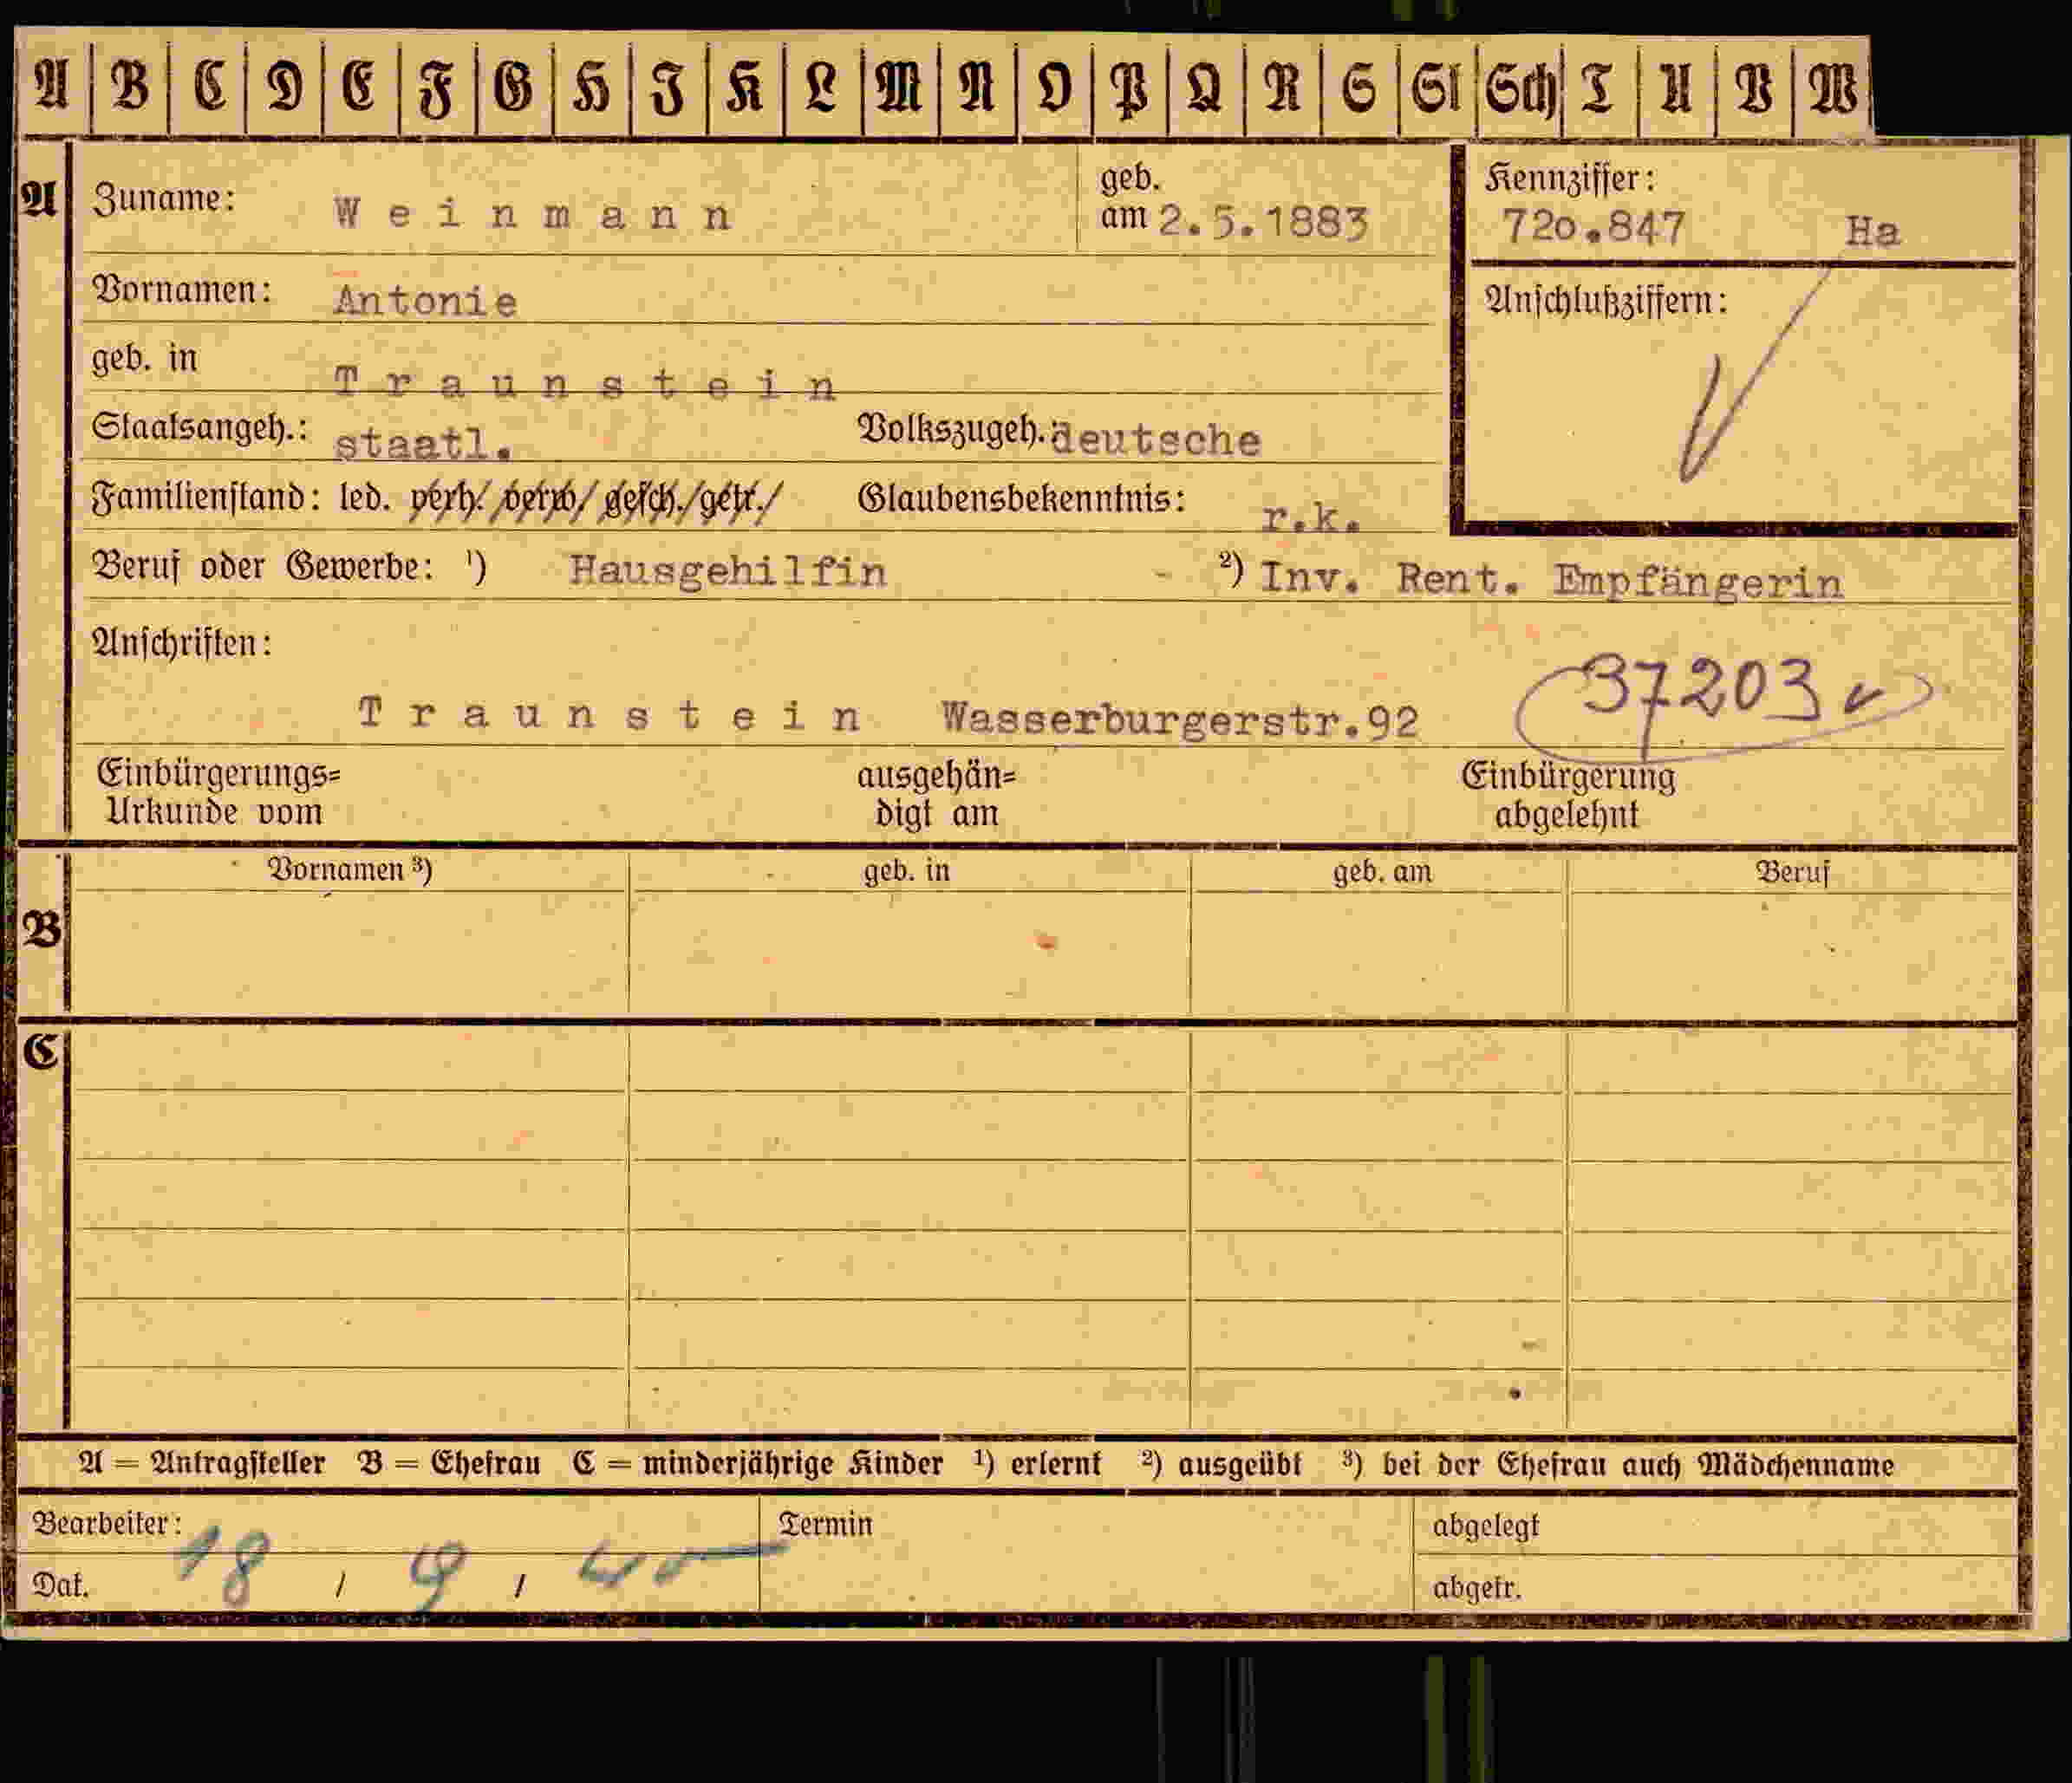 A B C D E F G H I K L M N O P Q R S St Sch T U V W
A Zuname: Weinmann geb. am 2.5.1883
Kennziffer: 720.847 Ha
Vornamen: Antonie
Anschlußziffern:
geb. in Traunstein
Staatsangeh.: staatl. Volkszugeh. deutsche
Familienstand: led. verh. verw. gesch. getr. Glaubensbekenntnis: r.k.
Beruf oder Gewerbe: ¹) Hausgehilfin - ²) Inv. Rent. Empfängerin
Anschriften:
Traunstein Wasserburgerstr.92 37203
Einbürgerungs= ausgehän= Einbürgerung
Urkunde vom digt am abgelehnt
B Vornamen ³) geb. in geb. am Beruf
C
A = Antragsteller B = Ehefrau C = minderjährige Kinder ¹) erlernt ²) ausgeübt ³) bei der Ehefrau auch Mädchenname
Bearbeiter: Termin abgelegt
Dat. 18 / 9 / 40 abgetr.